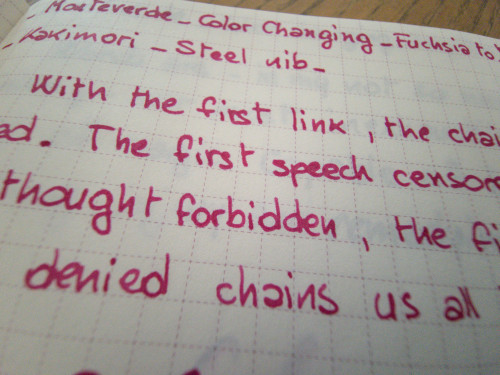 - Monteverde - Color Changing - Fuchsia to
- Kakimori - Steel nib -
With the first link, the chai
ed. The first speech censor
thought forbidden, the fi
denied chains us all